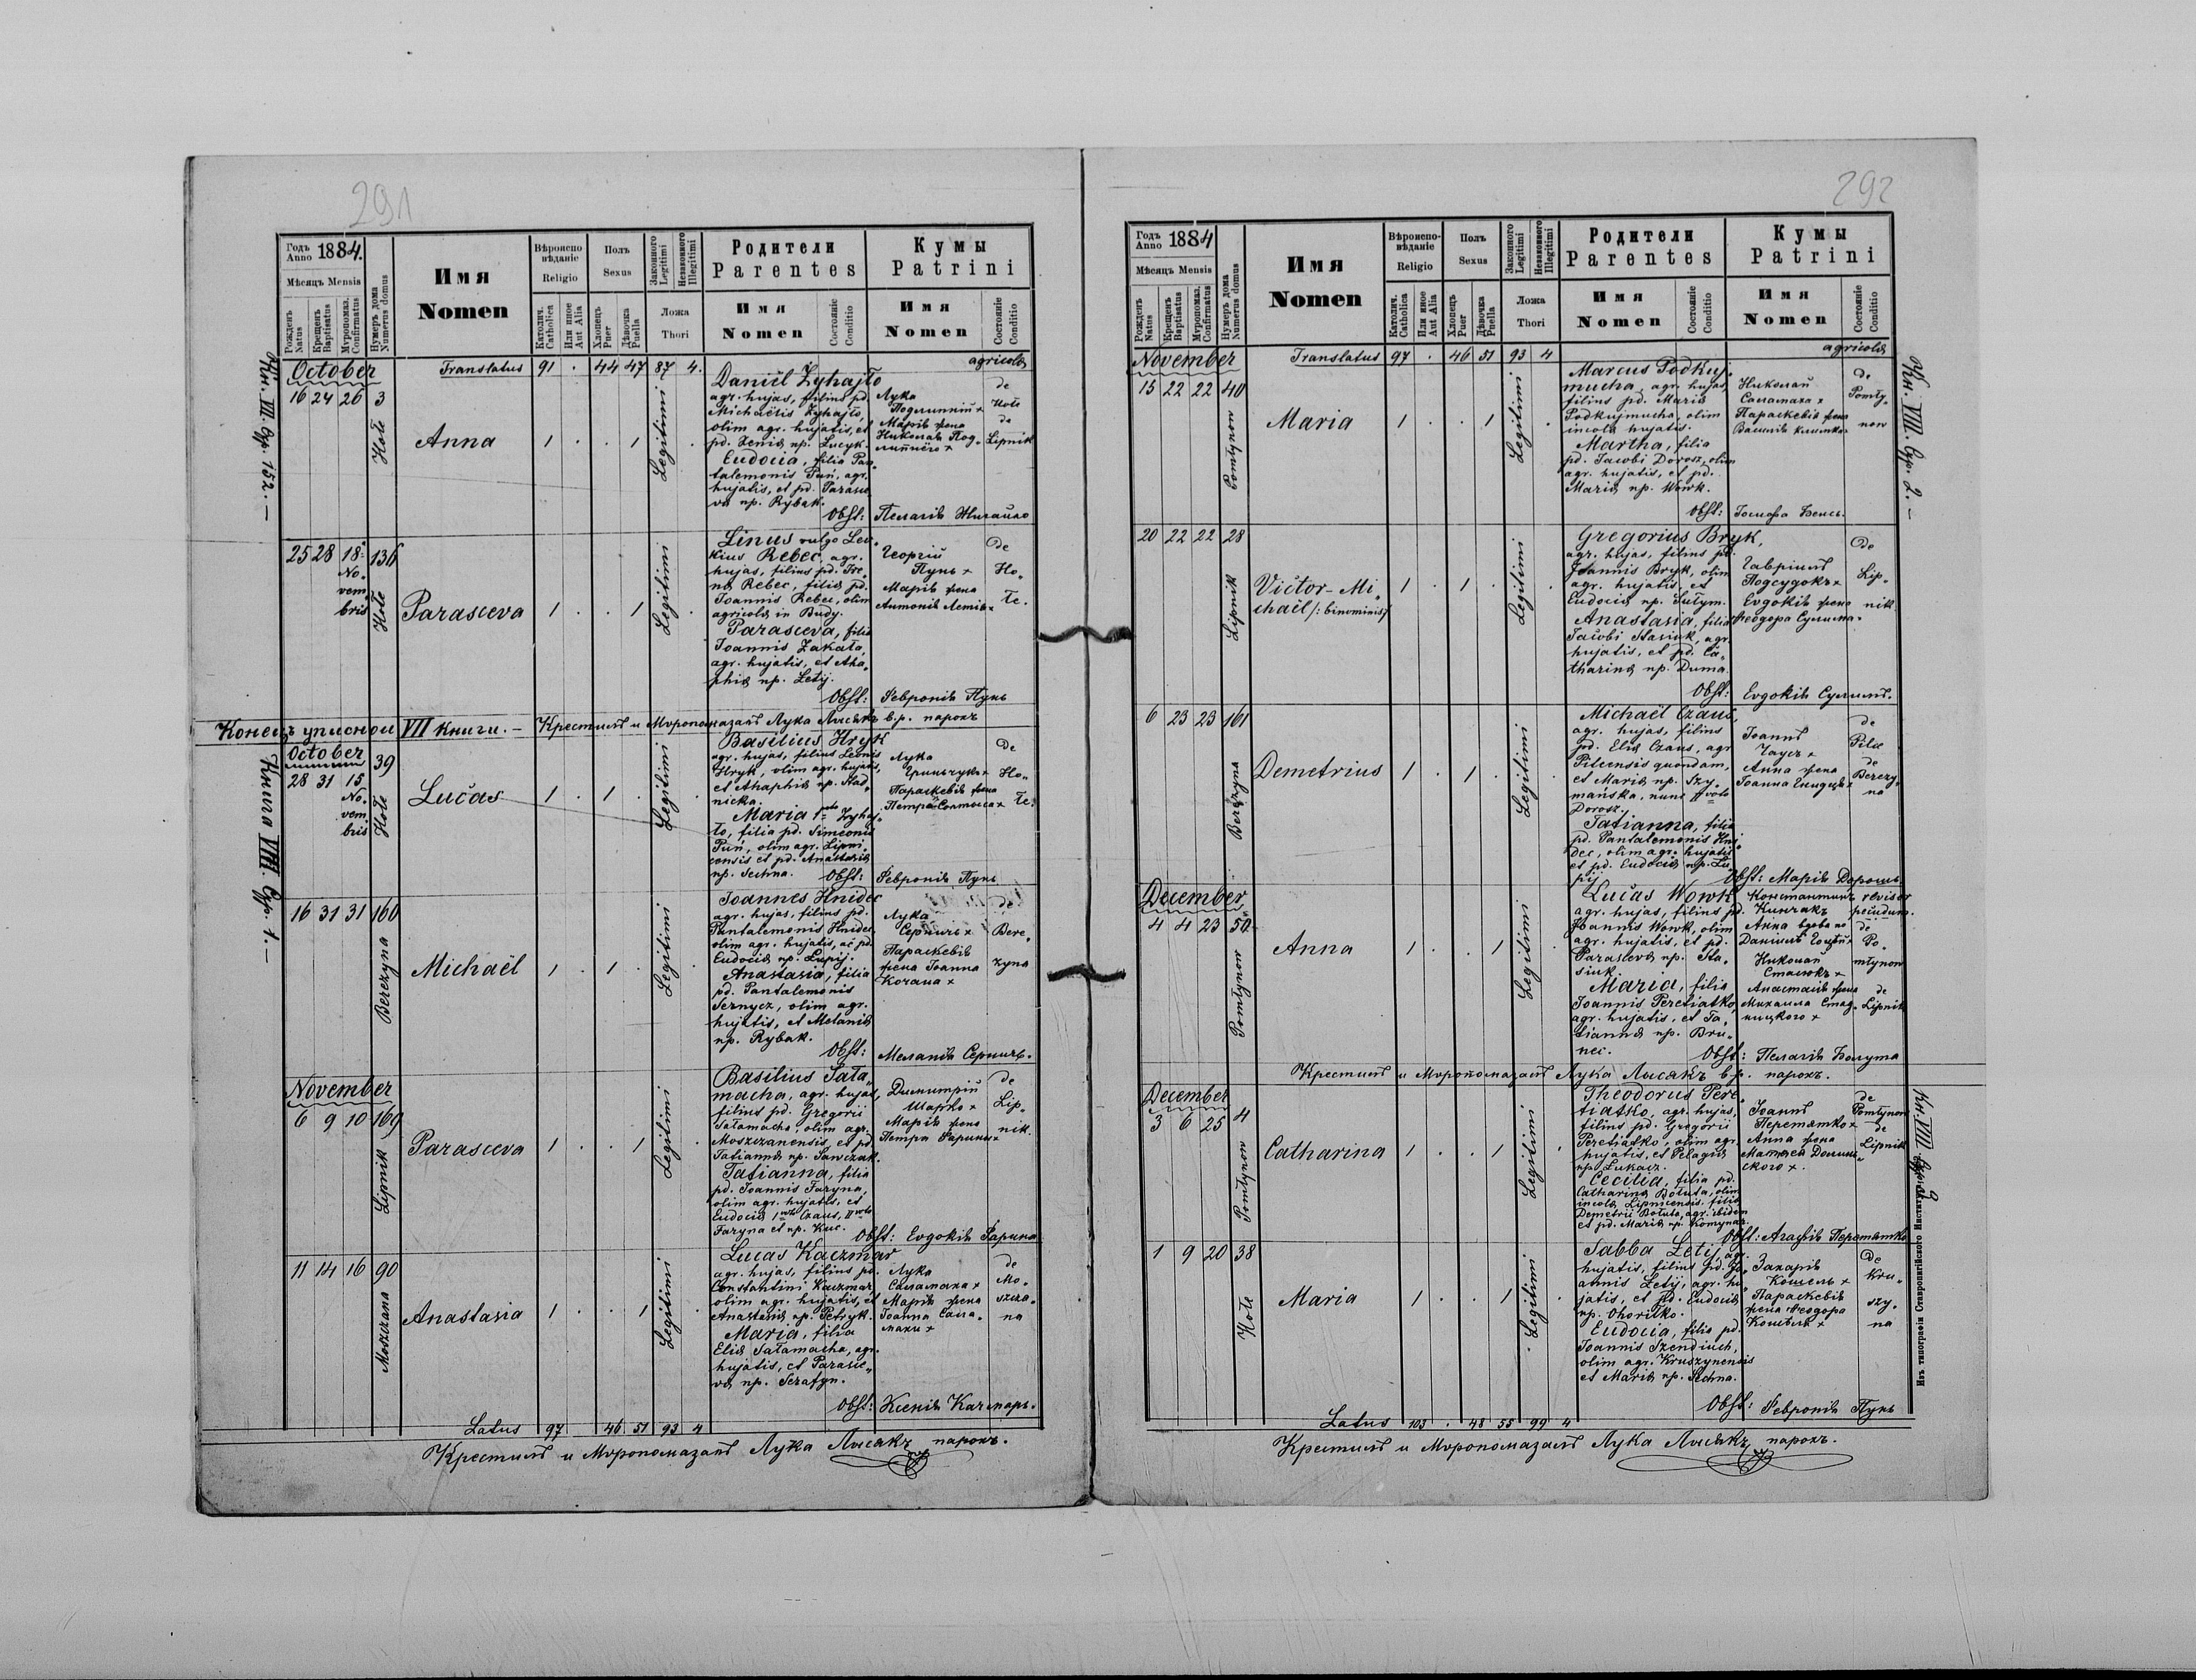 291
Годъ Anno 1884.
Мѣсяцъ Mensis
Рожденъ Natus
Крещенъ Baptisatus
Мѵропомаз. Confirmatus
Нумеръ дома Numerus domus
Имя
Nomen
Вѣроиспо
вѣданіе
Religio
Католич. Catholica
Или иное Aut Alia
Полъ
Sexus
Хлопецъ Puer
Дѣвочка Puella
Законного Legitimi
Незаконного Illegitimi
Ложа
Thori
Родители
Parentes
Имя
Nomen
Состояніе Conditio
Кумы
Patrini
Имя
Nomen
Состояніе Conditio
Кн. VII. Стр. 152. –
October
Translatus 91 . 44 47 87 4.
agricola
16 24 26 3
Hołe
Anna
1 . . 1
Legitimi
Daniël Żyhajło
agr. hujas, filius pd.
Michaëlis Żyhajło,
olim agr. hujatis, et
pd. Xeniæ np. Lucyk.
Eudocia, filia Pan„
talemonis Puń, agr.
hujatis, et pd. Parasce„
væ np. Rybak.
Лука
Марія жена
Николая Под„
de
Hołe
de
Lipnik
Obst: Пелагія Жигайло
25 28 18: 136
No„
vem„
bris
Hołe
Parasceva
1 . . 1
Legitimi
Linus vulgo Lev„
kius Rebec, agr.
hujas, filius pd. Ire„
næ Rebec, filiæ pd.
Joannis Rebec, olim
agricolæ in Budy.
Parasceva, filia
Joannis Zakała,
agr. hujatis, et Aha„
phiæ np. Letij.
Георгій
Пунь +
Марія жена
Антонія
De
Ho„
łe.
Obst: Февронія Пунь
Конецъ уписной VII книги. – Крестилъ и Мѵропомазалъ Лука Лисякъ в.р. парохъ
Книга VIII. Стр. 1. –
October
28 31 15 39
No„
vem„
bris
Hołe
Lučas
1 . 1 .
Legitimi
Basilius Hryk
agr. hujas, filius Leonis
Hryk, olim agr. hujatis,
et Ahaphiæ np. Stad„
nicka.
Maria 1mo Żyhaj„
ło, filia pd. Simeonis
Puń, olim agr. Lipni„
censis et pd. Anastasiæ
np. Sechna.
Лука
Гриньчукъ +
Параскевія жена
Петра
De
Ho„
łe.
Obst: Февронія Пунь
16 31 31 160
Berezyna
Michaël
1 . 1 .
Legitimi
Joannes Hnidec
agr. hujas, filius pd.
Pantalemonis Hnidec,
olim agr. hujatis, ac pd.
Eudociæ np. Lupij.
Anastasia, filia
pd. Pantalemonis
Sernycz, olim agr.
hujatis, et Melaniæ
np. Rybak.
Лука
Серничь +
Параскевія
жена Іоанна
Кочана +
de
Bere„
zyna
Obst: Меланія Серничь.
November
6 9 10 169
Lipnik
Parasceva
1 . . 1
Legitimi
Basilius Sała„
macha, agr. hujas,
filius pd. Gregorii
Sałamacha, olim agr.
Moszczanensis, et pd.
Tatiannæ np. Sawczak.
Tatianna, filia
pd. Joannis Faryna,
olim agr. hujatis, et
Eudociæ 1mo Czaus, IIvoto
Faryna et np. Kuc.
Димитрій
Шарко +
Марія жена
Петра Фарины +
de
Lip„
nik.
Obst: Евдокія Фарина
11 14 16 90
Moszczana
Anastasia
1 . . 1
Legitimi
Lucas Kaczmar
agr. hujas, filius pd.
Constantini Kaczmar,
olim agr. hujatis, et
Anastasiæ np. Petryk.
Maria, filia
Eliæ Sałamacha, agr.
hujatis, et Parasce„
væ np. Serafyn.
Лука
Саламаха +
Марія жена
Іоанна Сала„
махи +
de
Mo„
szcza„
na
Obst: Ксенія Качмарь.
Latus 97 46 51 93 4
Крестилъ и Мѵропомазалъ Лука Лисякъ парохъ.
292
Годъ Anno 1884
Мѣсяцъ Mensis
Рожденъ Natus
Крещенъ Baptisatus
Мѵропомаз. Confirmatus
Нумеръ дома Numerus domus
Имя
Nomen
Вѣроиспо-
вѣданіе
Religio
Католич. Catholica
Или иное Aut Alia
Полъ
Sexus
Хлопецъ Puer
Дѣвочка Puella
Законного Legitimi
Незаконного Illegitimi
Ложа
Thori
Родители
Parentes
Имя
Nomen
Состояніе Conditio
Кумы
Patrini
Имя
Nomen
Состояніе Conditio
Кн. VIII. Стр. 2. –
November
Translatus 97 . 46 51 93 4
agricola
15 22 22 40
Pomłynow
Maria
1 . . 1
Legitimi
Marcus Podkuj„
mucha, agr. hujas,
filius pd. Mariæ
Podkujmucha, olim
incolæ hujatis.
Martha, filia
pd. Jacobi Dorosz, olim
agr. hujatis, et pd.
Mariæ np. Wowk.
Николай
Саламаха +
Параскевія жена
Василія Климка +
de
Pomły„
now
Obst:
20 22 22 28
Lipnik
Victor-Mi„
chaël /: binominis /
1 . 1 .
Legitimi
Gregorius Bryk,
agr. hujas, filius pd.
Joannis Bryk, olim
agr. hujatis, et
Eudociæ np. Sułym.
Anastasia, filia
Jacobi Stasiuk, agr.
hujatis, et pd. Ca„
tharinæ np. Duma.
Гавріилъ
Подсудокъ +
Евдокія жена
Ѳеодора Сулима +
De
Lip„
nik.
Obst: Евдокія Сулимъ.
6 23 23 161
Berezyna
Demetrius
1 . 1 .
Legitimi
Michaël Czaus,
agr. hujas, filius
pd. Eliæ Czaus, agr.
Pilcensis quondam,
et Mariæ np. Szy„
mańska, nunc IIvoto
Dorosz.
Tatianna, filia
pd. Pantalemonis Hni„
dec, olim agr. hujatis
et pd. Eudociæ np. Lu„
pij.
Іоаннъ
Чаусъ +
Анна жена
Іоанна
de
Pilce
de
Berezy„
na
Obst: Марія Дорошь
December
4 4 23 50
Pomłynow
Anna
1 . . 1
Legitimi
Lučas Wowk
agr. hujas, filius pd.
Joannis Wowk, olim
agr. hujatis, et pd.
Parascevæ np. Sta„
siuk.
Maria, filia
Joannis Peretiatko,
agr. hujatis, et Ta„
tiannæ np. Bru„
nec.
Константинъ
Кинчакъ
Анна вдова по
Данилѣ
Николай
Стасюкъ +
Анастасія жена
Михаила Стад„
ницкого +
revisor
pecudum.
de
Po„
młynow
de
Lipnik
Obst: Пелагія Болута
Крестилъ и Мѵропомазалъ Лука Лисякъ в.р. парохъ.
Кн. VIII. Стр. 2
December
3 6 25 4
Pomłynow
Catharina
1 . . 1
Legitimi
Theodorus Pere„
tiatko, agr. hujas,
filius pd. Gregorii
Peretiatko, olim agr.
hujatis, et Pelagiæ
np. Lukacz.
Cecilia, filia pd.
Catharinæ Bołuta, olim
incolæ Lipnicensis, filiæ
Demetrii Bołuta, agr. ibidem
et pd. Mariæ np. Komynar.
Іоаннъ
Перетятко +
Анна жена
Матѳея Долин„
ского +.
de
Pomłynow
de
Lipnik
Obst: Агафія Перетятко
1 9 20 38
Hołe
Maria
1 . . 1
Legitimi
Sabba Letij, agr.
hujatis, filius pd. Jo„
annis Letij, agr. hu„
jatis, et pd. Eudociæ
np. Ohorilko.
Eudocia, filia pd.
Joannis Szendiuch,
olim agr. Kruszynensis
et Mariæ np. Sechna.
Захарія
Кошель +
Параскевія
жена Ѳеодора
Кошеля +
De
Kru„
szy„
na
Obst: Февронія Пунь
Latus 103 . 48 55 99 4
Крестилъ и Мѵропомазалъ Лука Лисякъ парохъ.
Изъ типографіи Ставропигійского Института